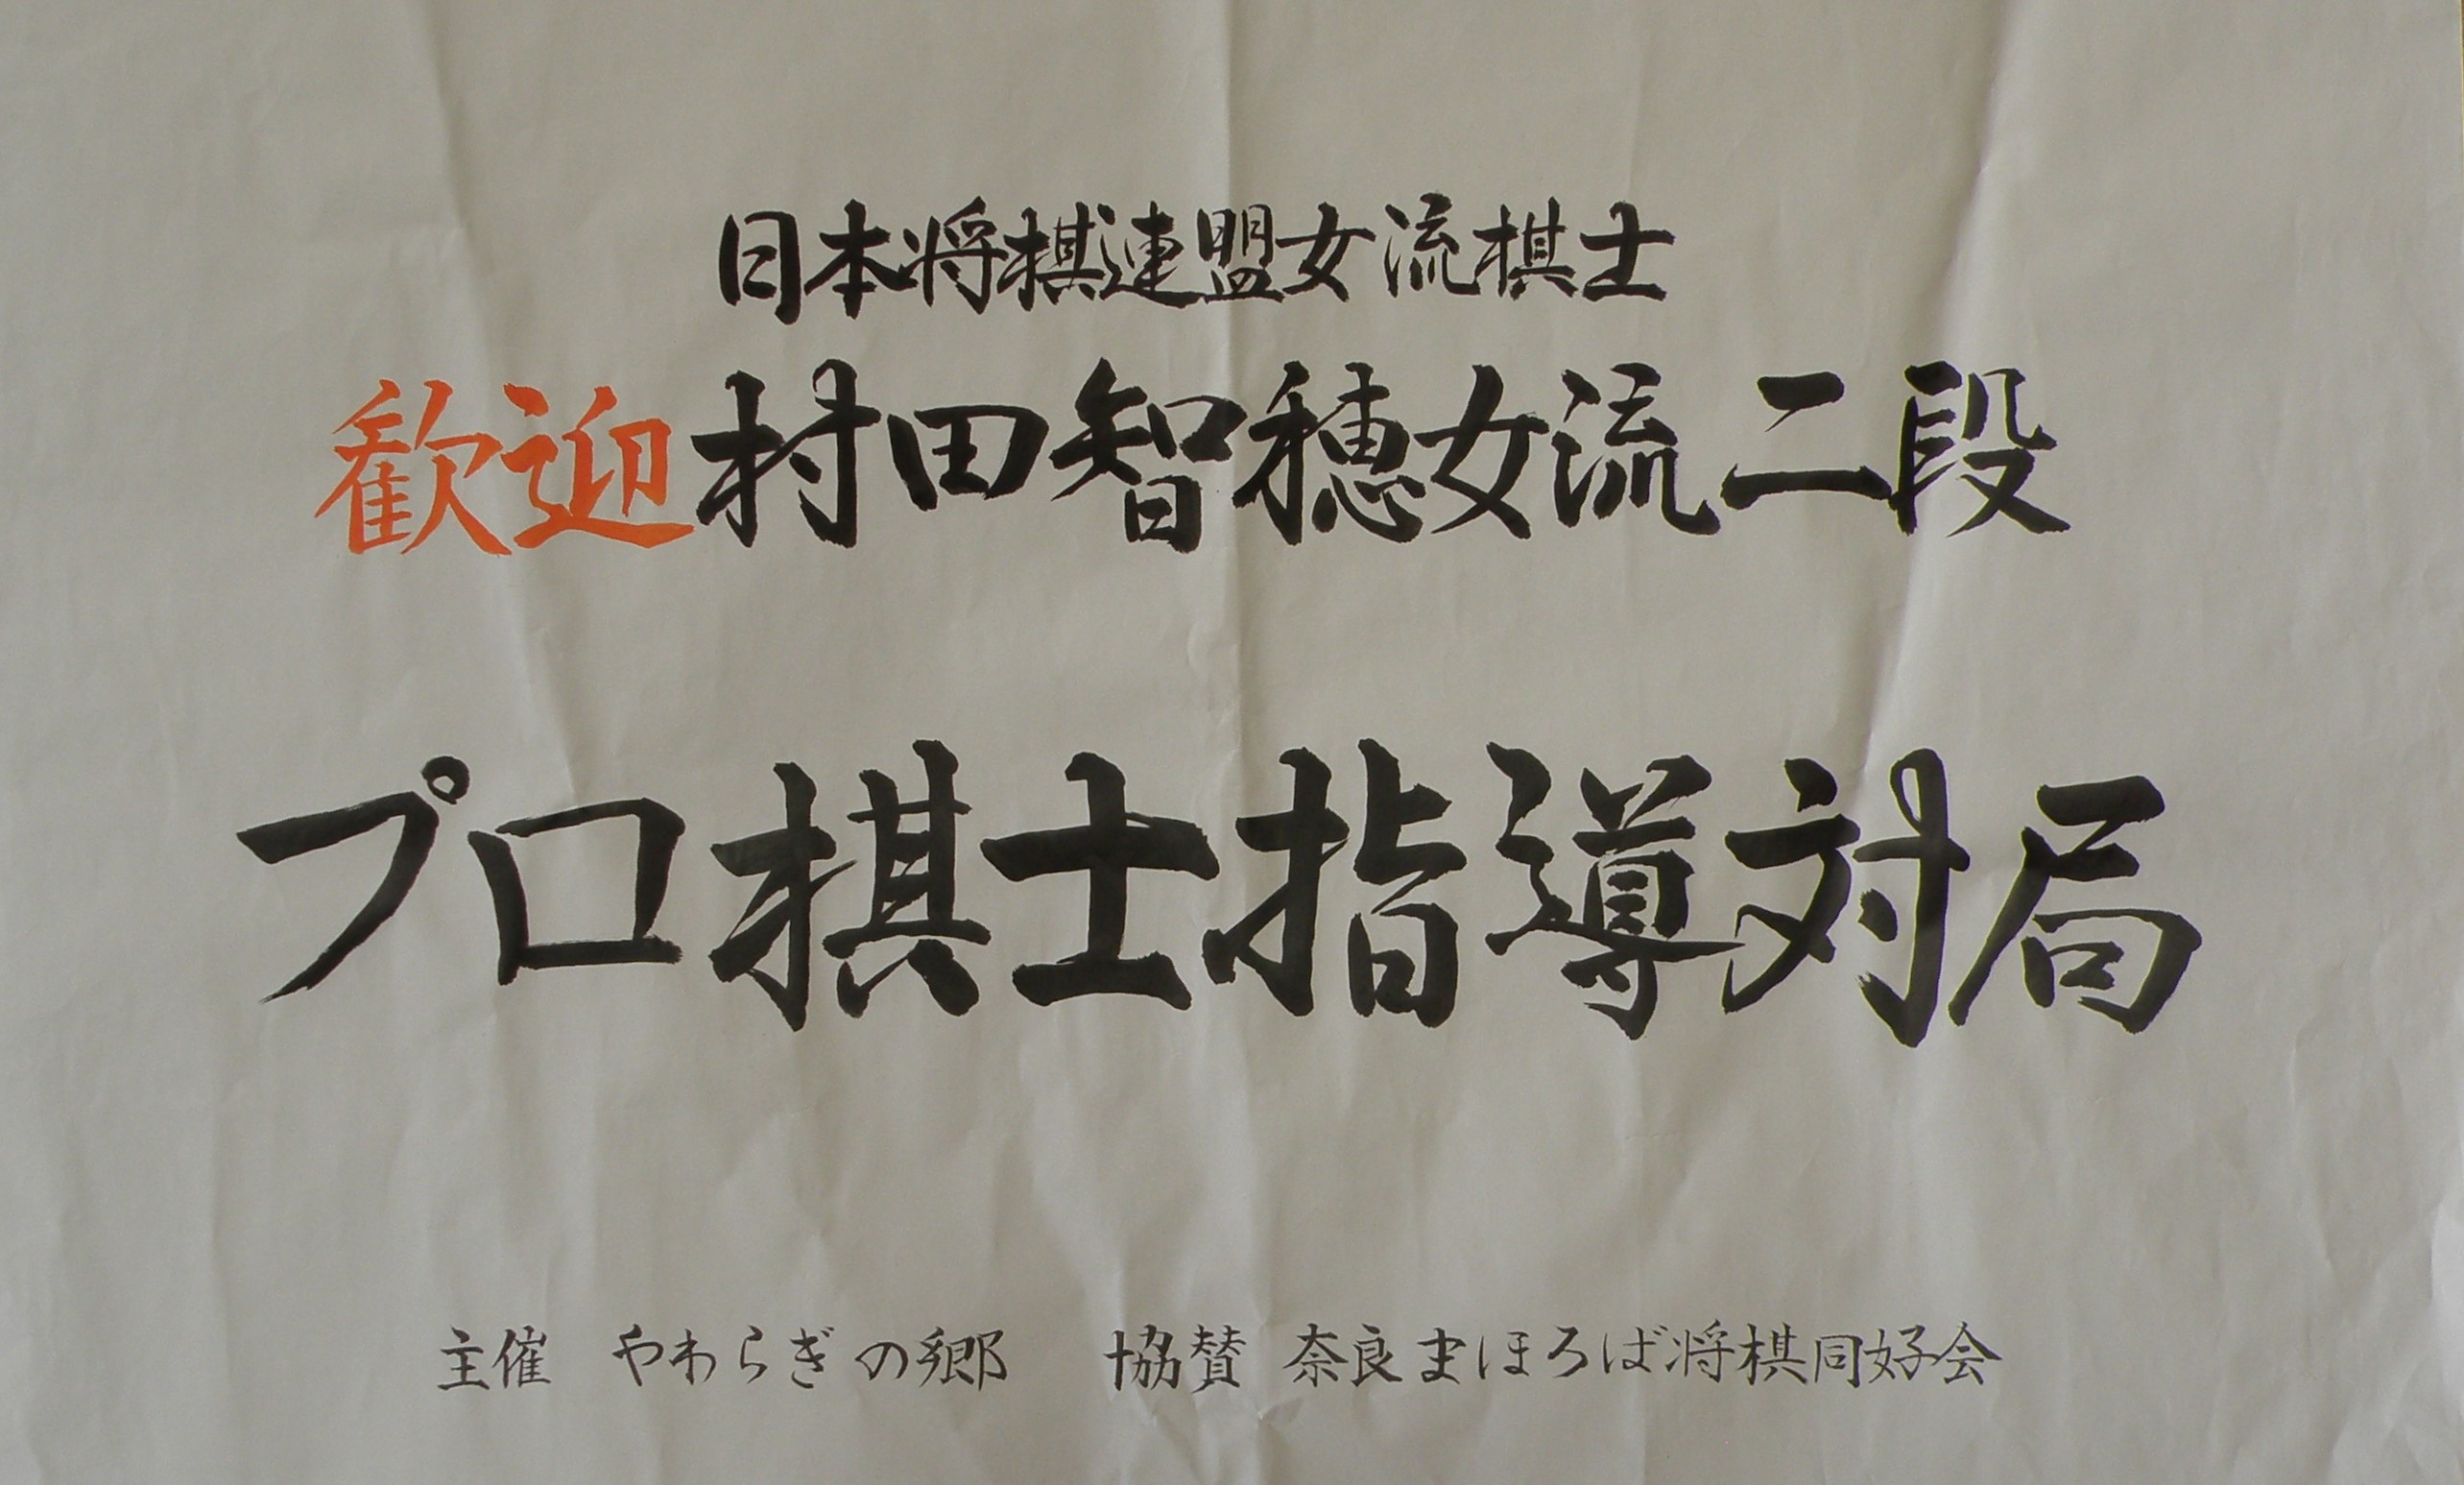 日本将棋連盟女流棋士
歓迎村田智穂女流二段
プロ棋士指導対局
主催 やわらぎの郷 協賛 奈良まほろば将棋同好会